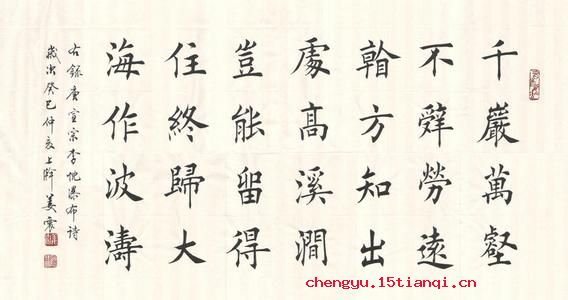 千巖萬壑
不辤勞遠
看方知出
處高溪澗
豈能留得
住終歸大
海作波濤
右錄唐宣宗李忱瀑布诗
歲次癸巳仲夏上浣姜震
chengyu.15tianqi.cn